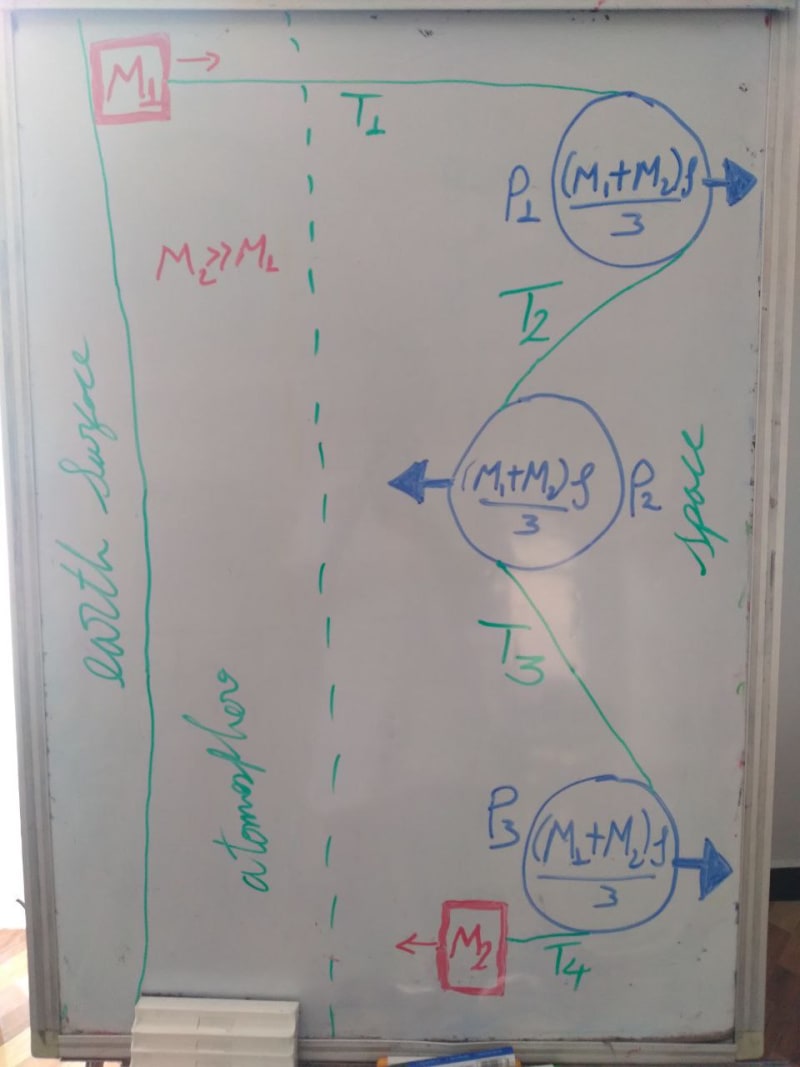 M₁
T₁
P₁
(M₁+M₂)ρ
3
M₂≫M₁
T₂
earth surface
(M₁+M₂)ρ
3
P₂
space
T₃
atomospher
P₃
(M₁+M₂)ρ
3
M₂
T₄